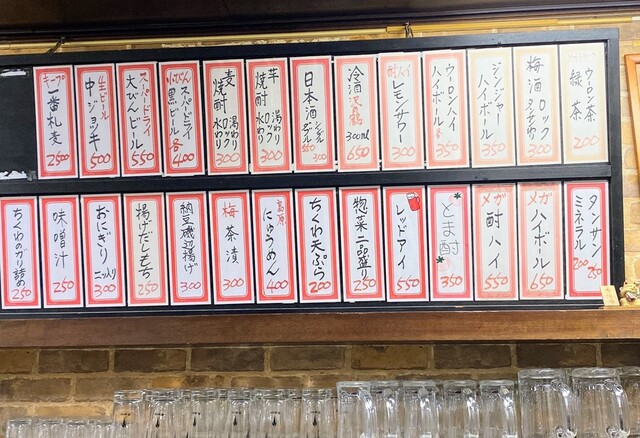 ウーロン茶
緑茶
200
梅酒 ロック
300
ジンジャー
ハイボール
350
ウーロンハイ
ハイボール
350
酎ハイ
レモンサワー
300
冷酒
300ml
650
日本酒
シングル
ダブル
芋焼酎
湯わり
水わり
ロック
300
麦焼酎
湯わり
水わり
ロック
300
小びん
スーパードライ
黒ビール
各400
スーパードライ
大びんビール
550
生ビール
中ジョッキ
500
キープ
一番札
麦
2500
タンサン
ミネラル
200
250
メガ
ハイボール
650
メガ
酎ハイ
550
とま酎
350
レッドアイ
550
惣菜二品盛り
250
ちくわ天ぷら
200
にゅうめん
400
梅茶漬
300
納豆磯辺揚げ
300
揚げだしもち
250
おにぎり
二ヶ入り
300
味噌汁
250
ちくわの
250